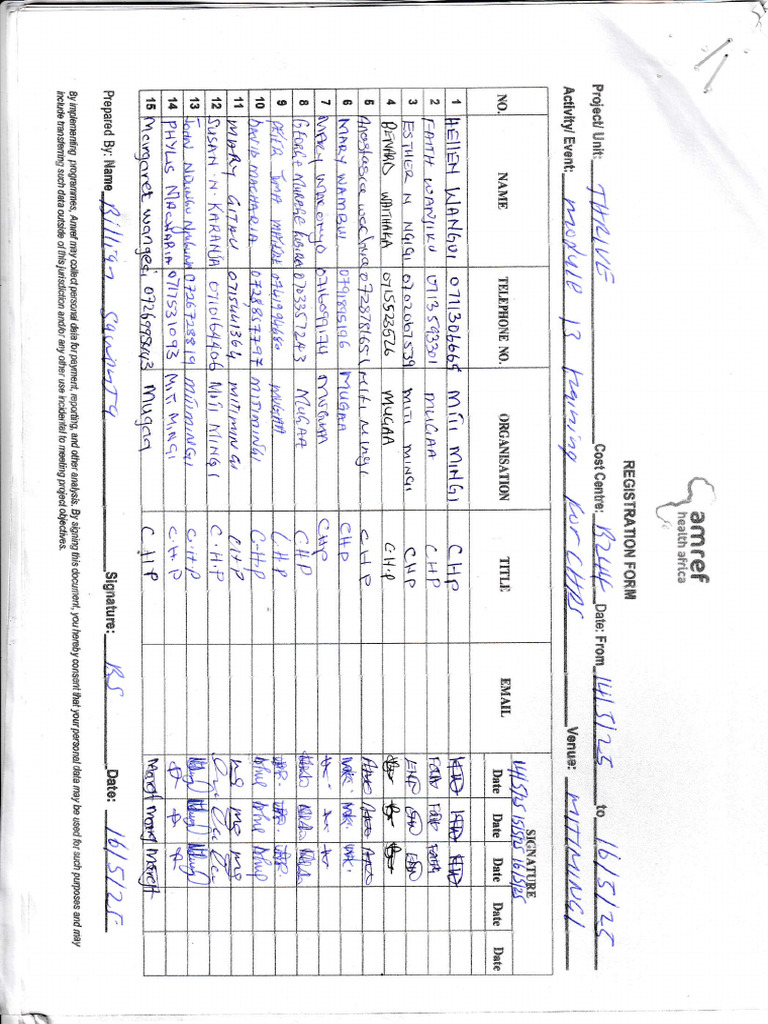 amref
health africa
REGISTRATION FORM
Project/ Unit: THRIVE Cost Centre: B244 Date: From 14/5/25 to 16/5/25
Activity/ Event: module 13 training for CHPS Venue: MITIMINGI
NO. NAME TELEPHONE NO. ORGANISATION TITLE EMAIL SIGNATURE
14/5/25 15/5/25 16/5/25
Date Date Date Date Date
1 HELLEN WANGUI 0711306665 MITI MINGI CHP
2 FAITH WANJIKU 0713593301 MUGAA CHP
3 ESTHER N NGIGI 0702067539 MITI MINGI CHP
4 BERNARD WAITHAKA 0715523526 MUGAA CHP
5 Anastasia 0728781651 MITI MINGI CHP
6 MARY WAMBUI 0791895196 MUGAA CHP
7 MARY CHP
8 GEORGE 0703357243 MUGAA CHP
9 PETER JUMA MUGAA CHP
10 DAVID MACHARIA 0728857797 MITIMINGI C.H.P
11 MARY GITAU 0715441364 MITIMINGI CHP
12 SUSAN .N. KARANJA 0710164406 MITI MINGI C.H.P
13 JOHN 0726728819 MITIMINGI C.H.P
14 PHYLIS MACHARIA 0717531093 MITI MINGI C.H.P
15 Margaret wangeci 0726998643 Mugaa C.H.P
Prepared By: Name Billian Signature: BS Date: 16/5/25
By implementing programmes, Amref may collect personal data for payment, reporting, and other analysis. By signing this document, you hereby consent that your personal data may be used for such purposes and may
include transferring such data outside of this jurisdiction and/or any other use incidental to meeting project objectives.